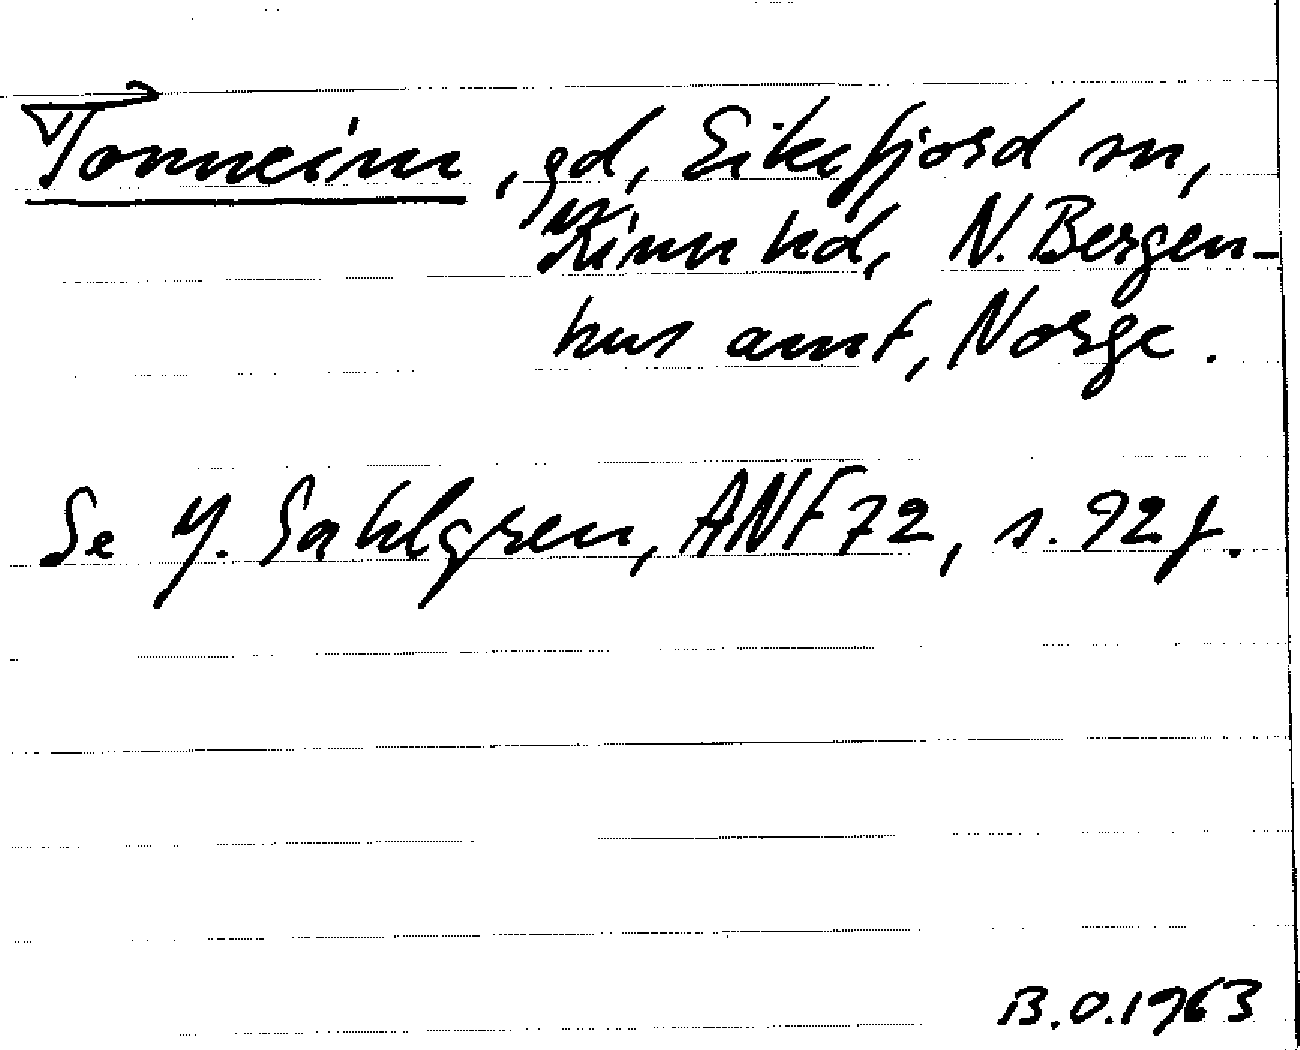 Tonneim, gd, Eikefjord sn,
Kinn hd, N. Bergen-
hus amt, Norge.
Se J. Sahlgren, ANF 72, s. 92 f.
B.O. 1963